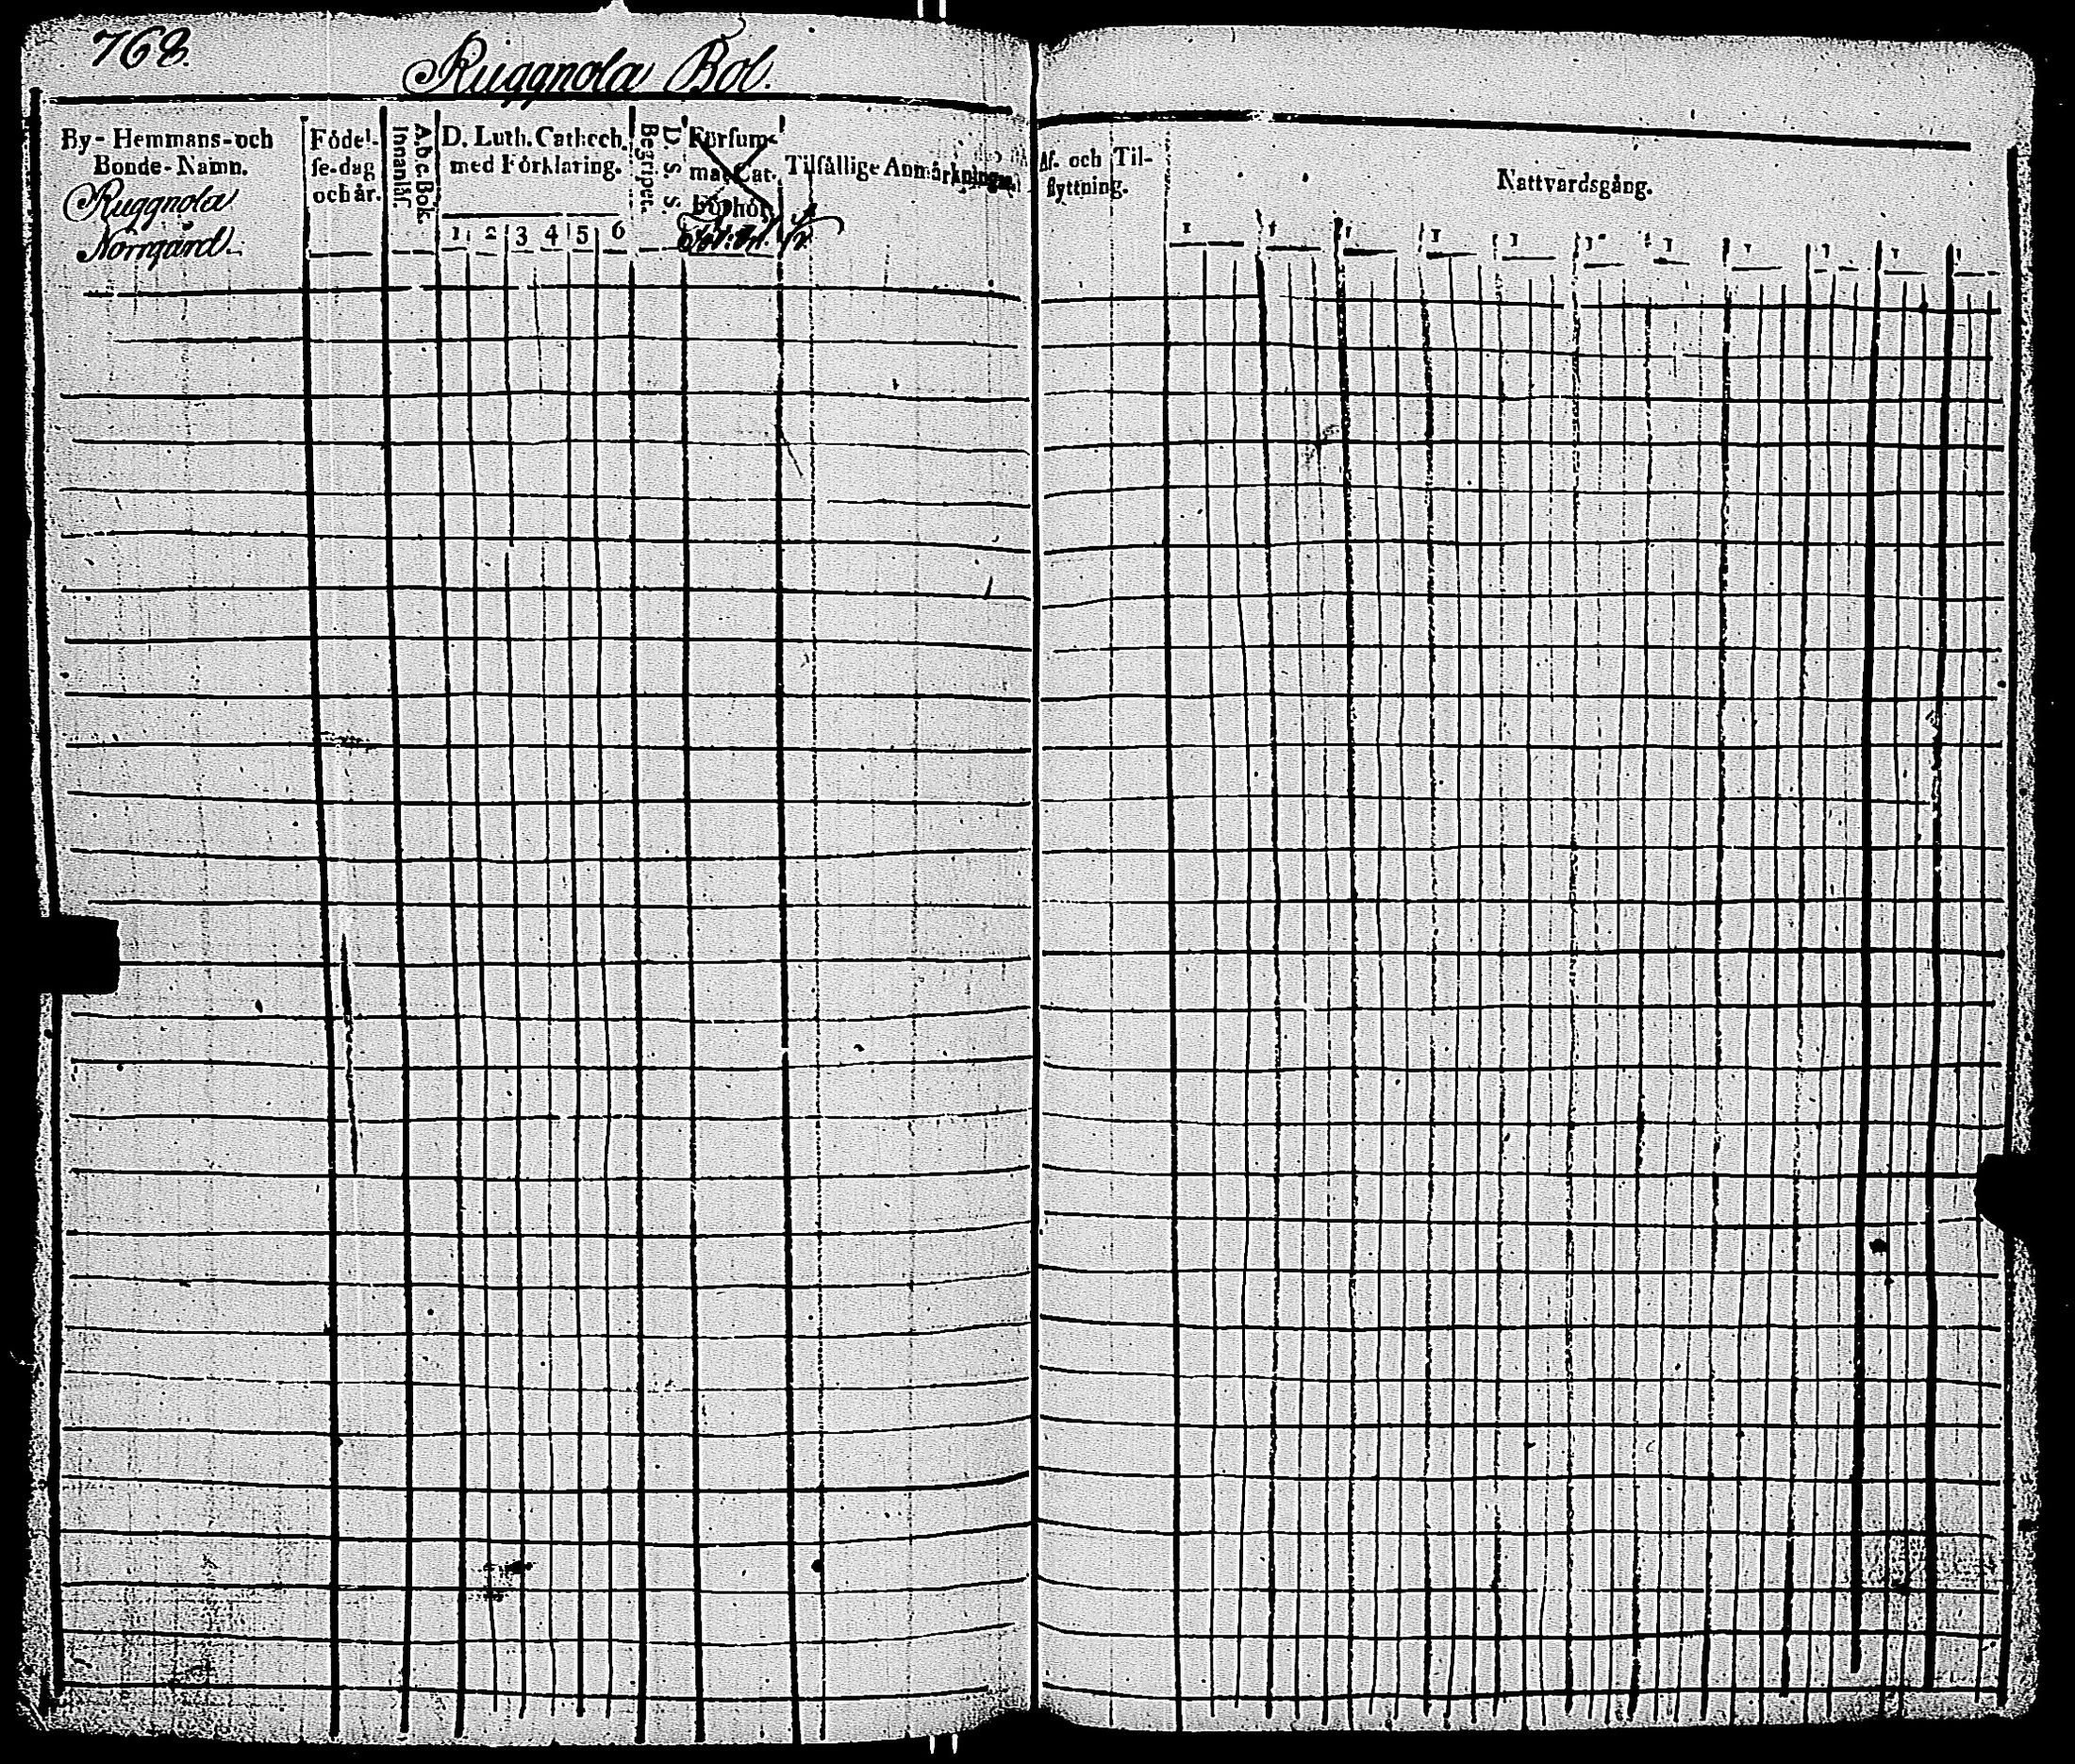 768.
Ruggnola Bol.
By-Hemmans-och
Bonde-Namn.
Ruggnola
Norrgård.
Födel-
se-dag
och år.
A.b.c.Bok.
Innanläs.
D. Luth. Cathech.
med Förklaring.
1 2 3 4 5 6
D. S. S.
Begripet.
Försum-
mat Cat.
Tilfällige Anmärkningar.
Af- och Til-
flyttning.
Nattvardsgång.
1 1 1 1 1 1 1 1 1 1 1